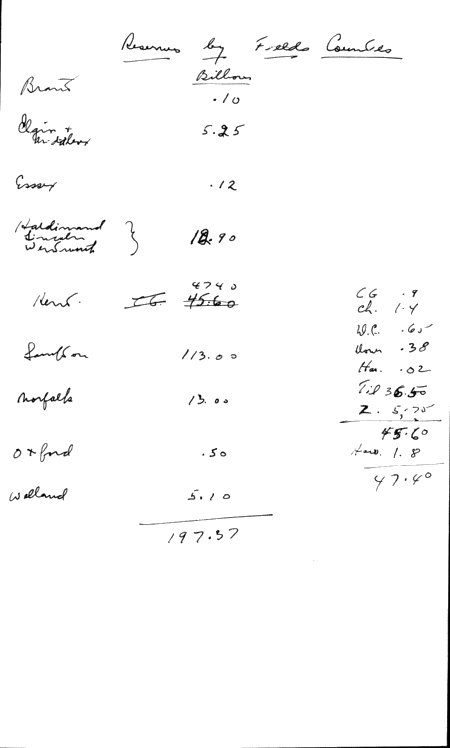 Reserves by Fields Counties
Billions
Brant .10
Elgin + Middlesex 5.25
Essex .12
Haldimand
Lincoln } 12.90
Wentworth
4740
Kent. CG. 45.60
Lambton 113.00
Norfolk 13.00
Oxford .50
Welland 5.10
197.37
CG .9
Ch. 1.4
D.C. .65
Dover .38
Har. .02
Til 36.50
Z. 5.75
45.60
1.8
47.40